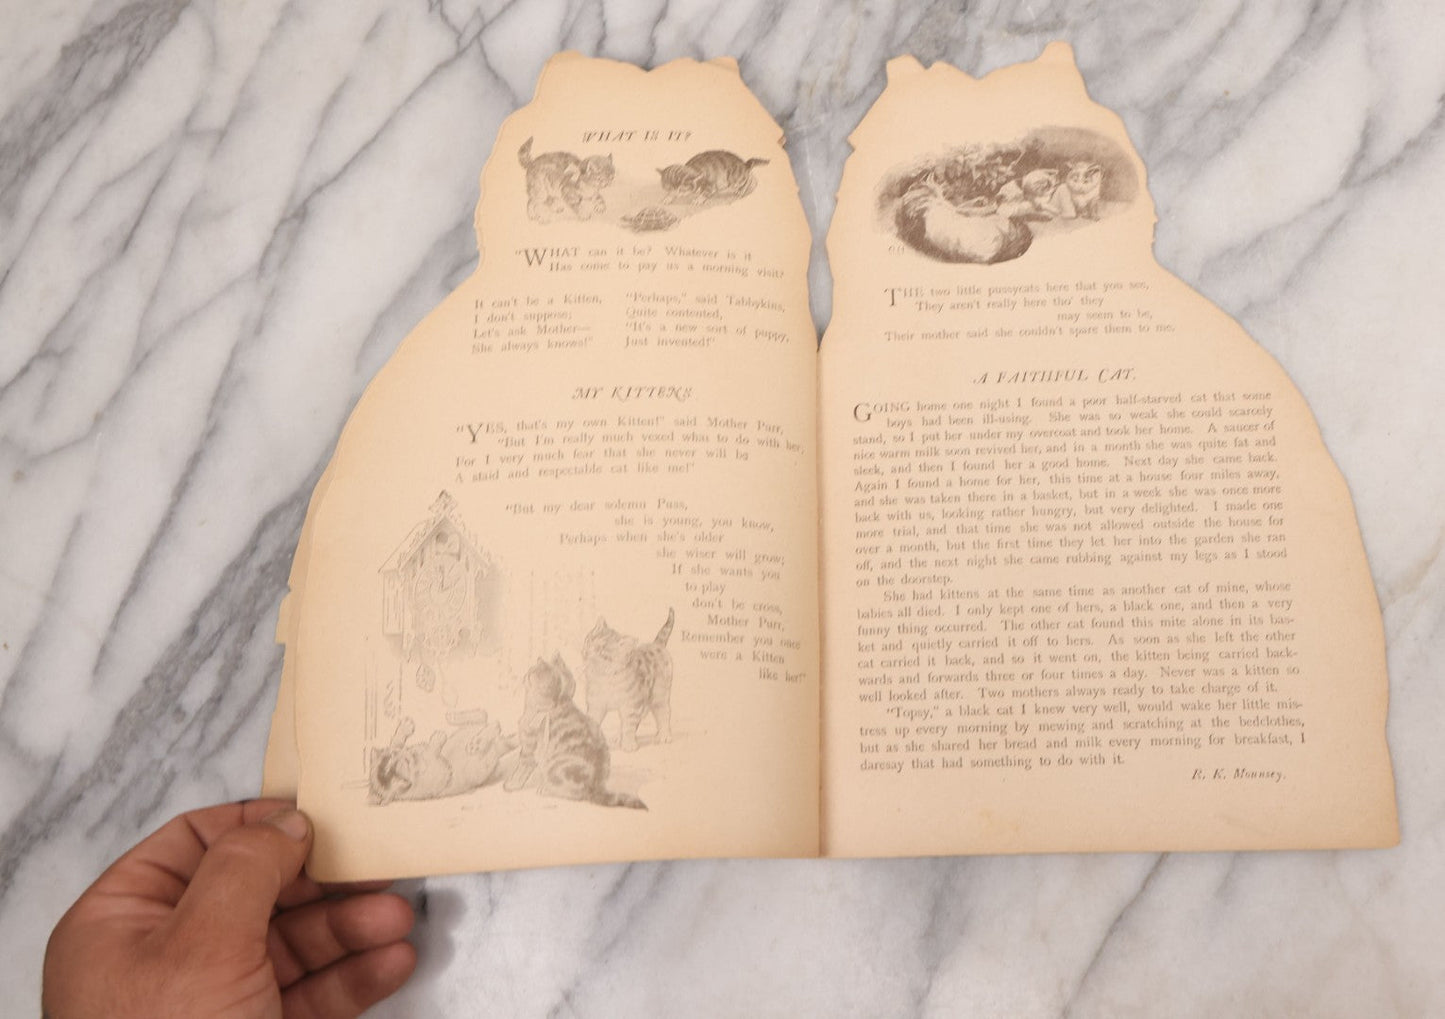 WHAT IS IT?
"WHAT can it be? Whatever is it
Has come to pay us a morning visit?
It can't be a Kitten,
I don't suppose;
Let's ask Mother—
She always knows!"
"Perhaps," said Tabbykins,
Quite contented,
"It's a new sort of puppy,
Just invented!"
MY KITTENS
"YES, that's my own Kitten!" said Mother Purr,
"But I'm really much vexed what to do with her,
For I very much fear that she never will be
A staid and respectable cat like me!"
"But my dear solemn Puss,
she is young, you know,
Perhaps when she's older
she wiser will grow;
If she wants you
to play
don't be cross,
Mother Purr,
Remember you once
were a Kitten
like her!"
THE two little pussycats here that you see,
They aren't really here tho' they
may seem to be,
Their mother said she couldn't spare them to me.
A FAITHFUL CAT.
GOING home one night I found a poor half-starved cat that some
boys had been ill-using. She was so weak she could scarcely
stand, so I put her under my overcoat and took her home. A saucer of
nice warm milk soon revived her, and in a month she was quite fat and
sleek, and then I found her a good home. Next day she came back.
Again I found a home for her, this time at a house four miles away,
and she was taken there in a basket, but in a week she was once more
back with us, looking rather hungry, but very delighted. I made one
more trial, and that time she was not allowed outside the house for
over a month, but the first time they let her into the garden she ran
off, and the next night she came rubbing against my legs as I stood
on the doorstep.
She had kittens at the same time as another cat of mine, whose
babies all died. I only kept one of hers, a black one, and then a very
funny thing occurred. The other cat found this mite alone in its bas-
ket and quietly carried it off to hers. As soon as she left the other
cat carried it back, and so it went on, the kitten being carried back-
wards and forwards three or four times a day. Never was a kitten so
well looked after. Two mothers always ready to take charge of it.
"Topsy," a black cat I knew very well, would wake her little mis-
tress up every morning by mewing and scratching at the bedclothes,
but as she shared her bread and milk every morning for breakfast, I
daresay that had something to do with it.
R. K. Mounsey.